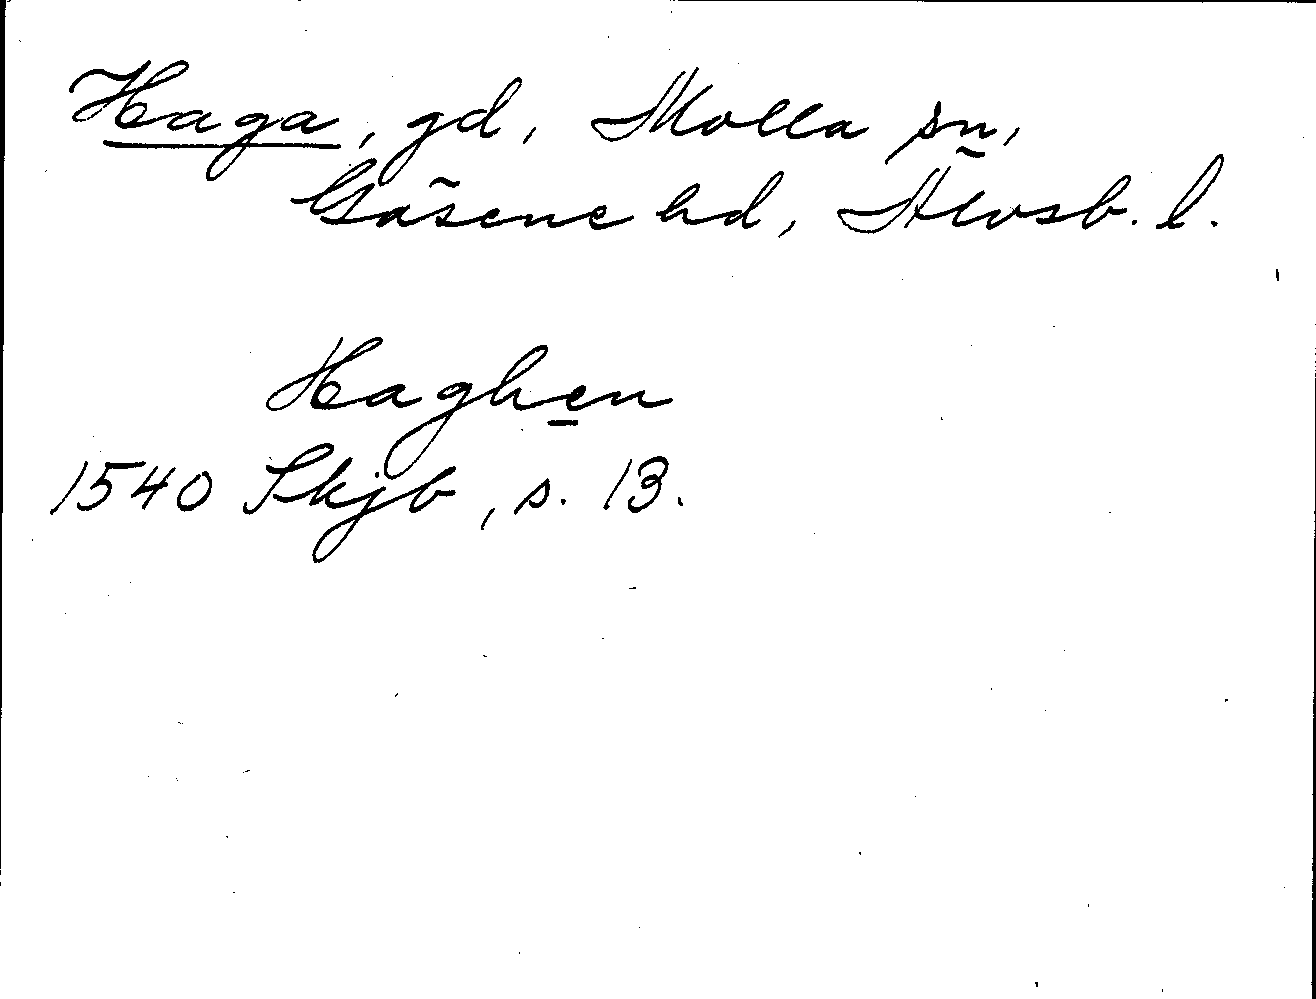 Haga, gd, Molla sn,
Gäsene hd, Älvsb. l.
Haghen
1540 Skjb, s. 13.